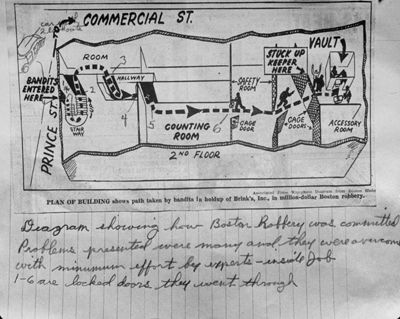 COMMERCIAL ST.
car
ROOM
3
HALLWAY
STUCK UP
KEEPER
HERE
VAULT
BANDITS
ENTERED
HERE
2
SAFETY
ROOM
4
5
6
STAIR
WAY
PRINCE ST.
COUNTING
ROOM
CAGE
DOOR
CAGE
DOORS
ACCESSORY
ROOM
2ND FLOOR
Associated Press Wirephoto Diagram from Boston Globe
PLAN OF BUILDING shows path taken by bandits in holdup of Brink's, Inc., in million-dollar Boston robbery.
Diagram showing how Boston Robbery was committed
Problems presented were many and they were overcome
with minumum effort by experts - inside Job
1-6 are locked doors they went through